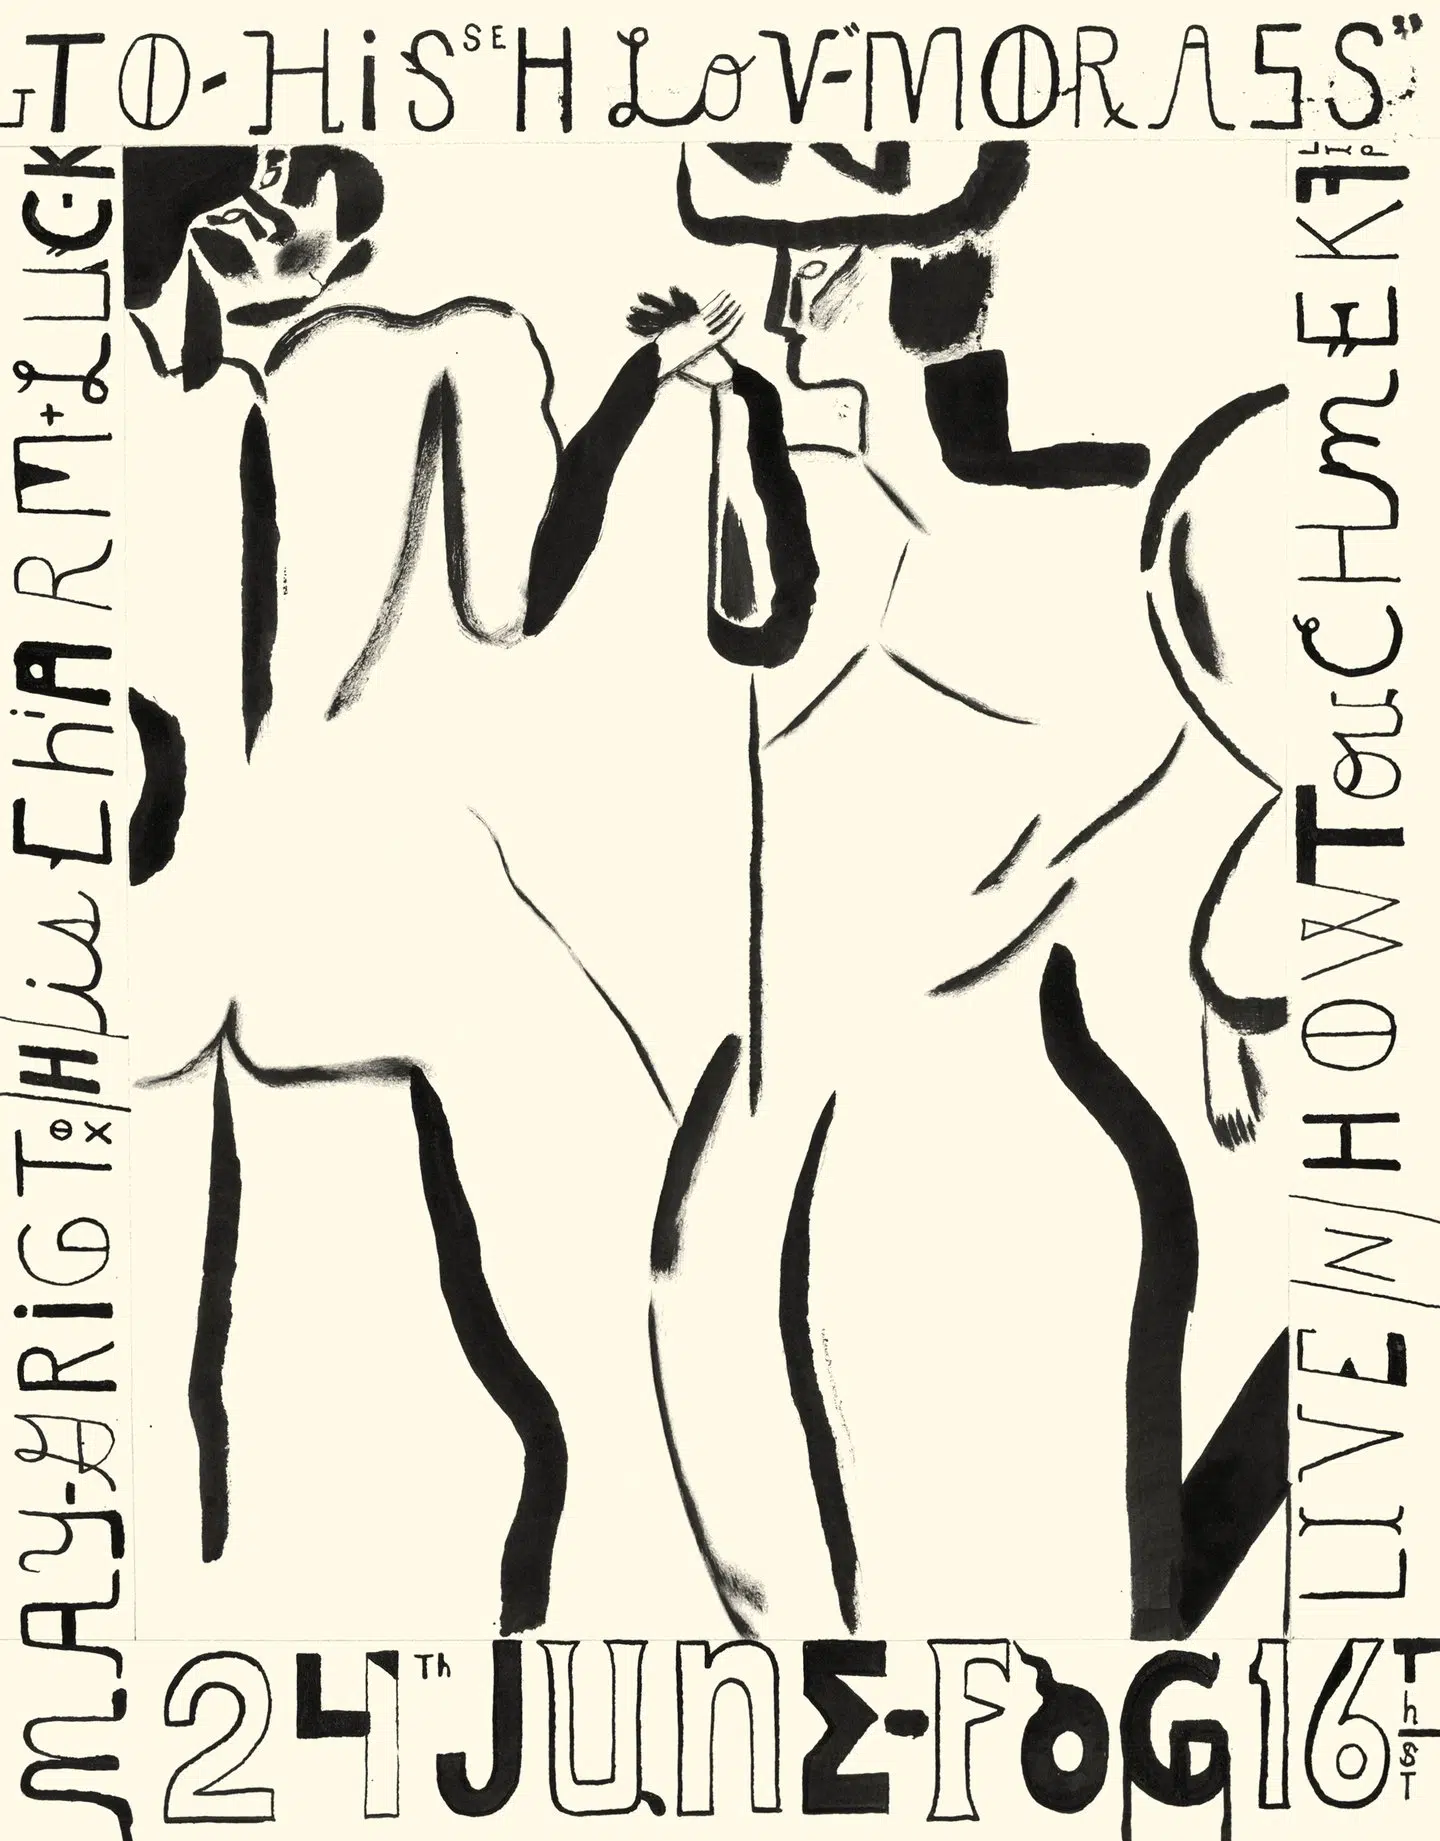 TO-HiS SE H LoV-"MORASS"
mAY-URiGT ox/H/is EhiARM+LUCK
LIVE/N/HOWTouCHmEK
24Th JUnE-FoG 16ThST